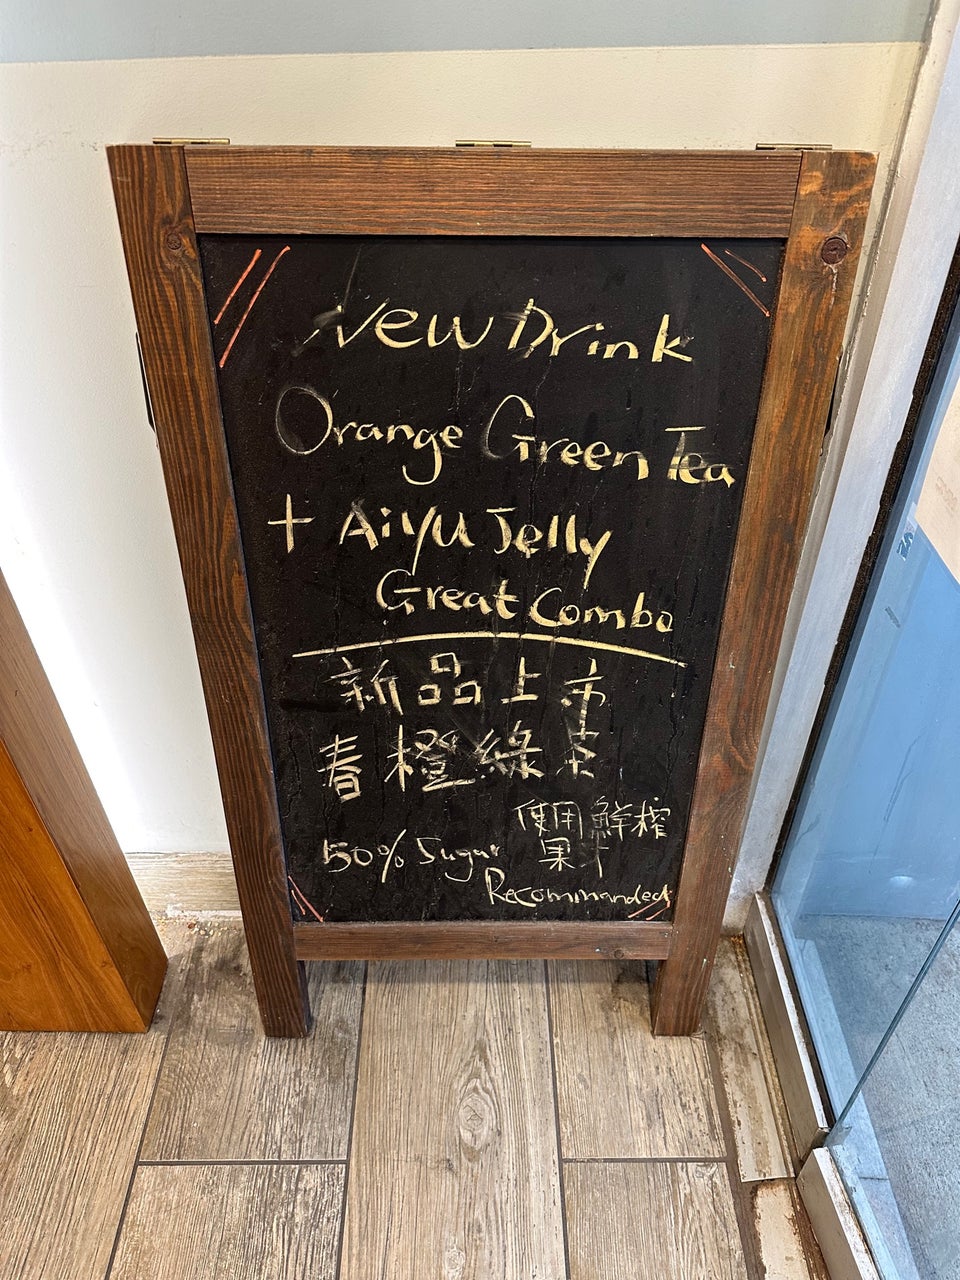 New Drink
Orange Green Tea
+ Aiyu Jelly
Great Combo
新品上市
春橙綠茶
使用鮮榨
果汁
50% Sugar
Recommanded